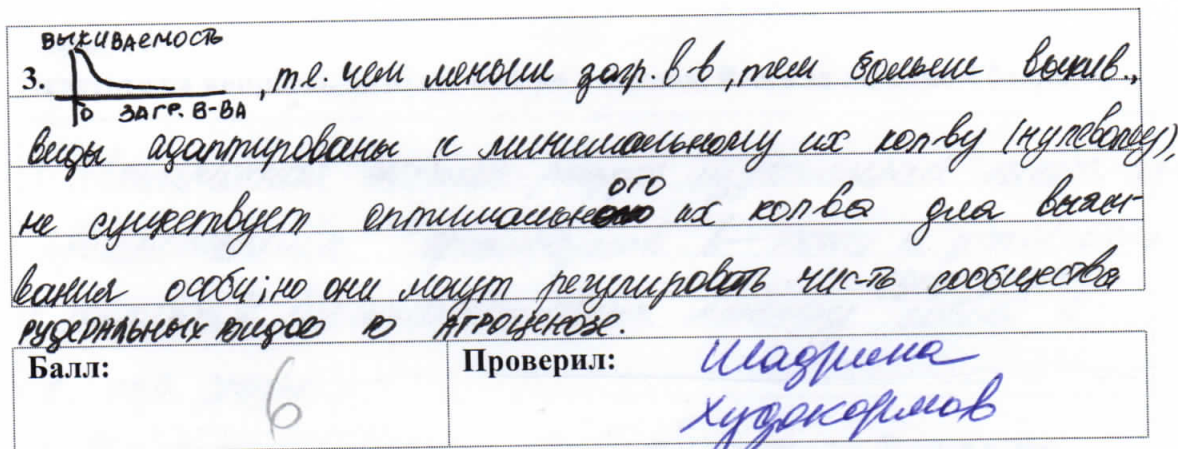 ВЫЖИВАЕМОСТЬ
3. , т.е. чем меньше загр. в-в, тем больше выжив.,
0 ЗАГР. В-ВА
виды адаптированы к минимальному их кол-ву (нулевому),
не существует оптимального их кол-ва для выжи-
вания особи; но они могут регулировать чис-ть сообщества
РУДЕРАЛЬНЫХ видов в АГРОЦЕНОЗЕ.
Балл: 6 Проверил: Шадрина
Худокормов